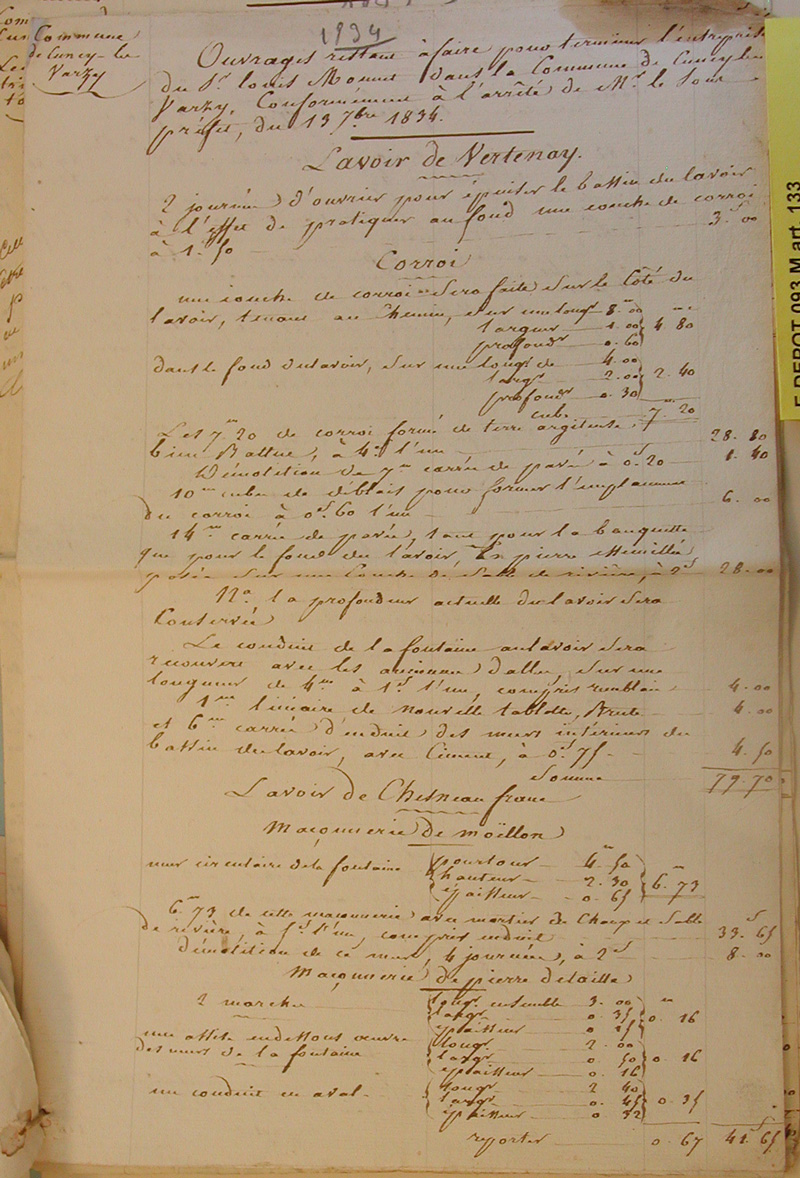 1834
Commune
de Cuncy-les
Varzy
Ouvrages restant à faire pour terminer l'entreprise
du Sr. Louis Moune dans la Commune de Cuncy les
Varzy, Conformément à l'arrêté de Mr. le Sous
préfet, du 13 7bre 1834.
Lavoir de Vertenay.
2 journées d'ouvrier pour épuiser le bassin du lavoir
à l'effet de pratiquer au fond une couche de corroi
à 1f. 50 3f. 00
Corroi
une couche de corroi sera faite sur le côté du
lavoir, tenant au chemin, sur une longr 8m 00
largeur 1. 00 4. 80
profondr 0. 60
dans le fond du lavoir, sur une longr de 4. 00
largr 2. 00 2. 40
profondr 0. 30
cube 7m 20
Les 7m 20 de corroi formé de terre argileuse
bien battue, à 4f. l'un 28. 80
Démolition de 7m carrés de pavé à 0f. 20 1. 40
10m cube de déblais pour former l'emplacement
du corroi à 0f. 60 l'un 6. 00
14m carrés de pavés, tant pour la banquette
que pour le fond du lavoir, en pierre
posée sur une couche de sable de rivière, à 2f 28. 00
Na. la profondeur actuelle du lavoir sera
Conservée
Le conduit de la fontaine au lavoir sera
recouvert avec les anciennes dalles sur une
longueur de 4m à 1f l'un, compris remblai 4. 00
1m linéaire de nouvelle tablette, brute 4. 00
et 6m carrés d'enduit des murs intérieurs du
bassin du lavoir, avec ciment, à 0f. 75 4. 50
Somme 79. 70
Lavoir de Chesneau franc
Maçonnerie de moëllon
mur circulaire de la fontaine pourtour 4m 50
hauteur 2. 30 6m 73
épaisseur 0. 65
6m 73 de cette maçonnerie avec mortier de Chaux et Sable
de rivière, à 5f. l'un, compris enduit 33f. 65
démolition de ce mur, 4 journées, à 2f 8. 00
Maçonnerie de pierre de taille
2 marches longr ensemble 3. 00
largr 0. 35 0m. 16
épaisseur 0. 15
une assise en dessous œuvre longr 2. 00
des murs de la fontaine largr 0. 50 0. 16
épaisseur 0. 16
un conduit en aval longr 2. 40
largr 0. 45 0. 35
épaisseur 0. 32
reporter 0. 67 41f. 65
E DEPOT 093 M art. 133